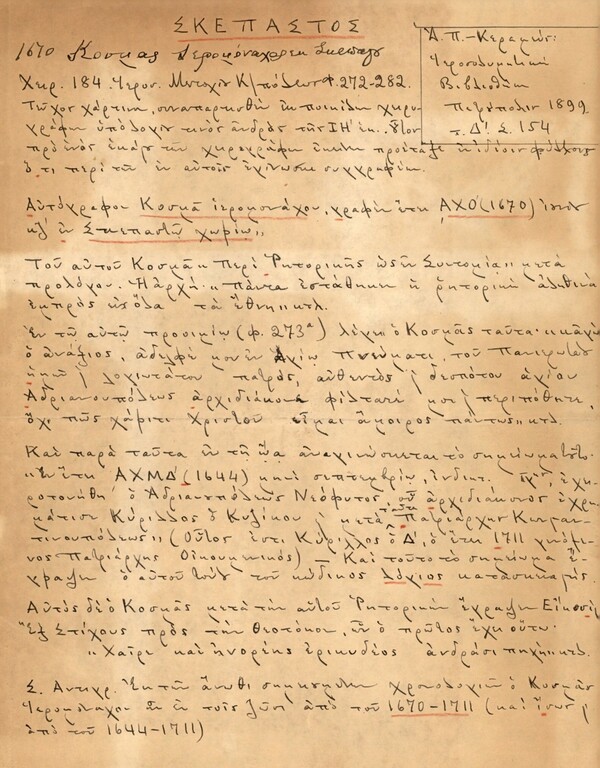 ΣΚΕΠΑΣΤΟΣ
1670 Κοσμας Ιερομόναχος εκ Σκεπαστού
Α. Π.-Κεραμεύς:
Ἱεροσολυμιτικὴ
Βιβλιοθήκη
Πετρούπολιν 1899
τ. Δ! Σ. 154
Χειρ. 184. Ἱεροσ. Μετοχίου Κ/πόλεως φ. 272-282.
Τεῦχος χάρτινον, συναπαρτισθὲν ἐκ ποικίλων χειρο-
γράφων ὑπὸ λογίου τινὸς ἀνδρὸς τῆς ΙΗ' ἑκ.
πρὸ ἑνὸς ἑκάστου τῶν χειρογράφων ἐκείνων προέταξε ἐν ἰδίοις φύλλοις
ὅ,τι περὶ τῶν ἐν αὐτοῖς ἐγίνωσκε συγγραφέων.
Αὐτόγραφον Κοσμᾶ ἱερομονάχου, γραφὲν ἔτει ΑΧΟ' (1670)
ἐν Σκεπαστῷ χωρίῳ,,
Τοῦ αὐτοῦ Κοσμᾶ "Περὶ Ῥητορικῆς ὡς ἐν Συντομίᾳ,, μετὰ
προλόγου. Ἡ ἀρχή· "Πάντα ἐστάθηκεν ἡ ῥητορικὴ ἀληθινὰ
ἐμπρὸς εἰς ὅλα τὰ ἔθνη,, κτλ.
Ἐν τῷ αὐτῷ προοιμίῳ (φ. 273α) λέγει ὁ Κοσμᾶς ταῦτα· "κἀγὼ
ὁ ἀνάξιος, ἀδελφὲ μου ἐν Ἁγίῳ Πνεύματι, τοῦ Πανιερωτάτου
λογιωτάτου πατρός, αὐθεντὸς δεσπότου ἁγίου
Ἀδριανουπόλεως ἀρχιδιάκονε φίλτατέ μοι περιπόθητε,
ὄχι πῶς χάριτι Χριστοῦ εἶμαι ἄμοιρος πάντως,, κτλ.
Καὶ παρὰ ταῦτα ἐν τῇ ᾤᾳ ἀναγινώσκεται τὸ σημείωμα τοῦτο·
"Ἐν ἔτει ΑΧΜΔ' (1644) μηνὶ σεπτεμβρίῳ, ἰνδικτ. ἐχει-
ροτονήθη ὁ Ἀδριανουπόλεως Νεόφυτος, οὗ ἀρχιδιάκονος ἐχρη-
μάτισε Κύριλλος ὁ Κυζίκου μετὰ ταῦτα Πατριάρχης Κωνσταν-
τινουπόλεως,, (Οὗτος ἐστι Κύριλλος ὁ Δ', ὁ ἔτει 1711 γενόμε-
νος Πατριάρχης Οἰκουμενικός) — Καὶ τοῦτο τὸ σημείωμα ἔ-
γραψεν ὁ αὐτὸς τοῦ κώδικος λόγιος κατασκευαστής.
Αὐτὸς δὲ ὁ Κοσμᾶς μετὰ τὴν αὐτοῦ Ῥητορικὴν ἔγραψεν Εἰκοσι
Ἓξ Στίχους πρὸς τὴν Θεοτόκον, ὧν ὁ πρῶτος ἔχει οὕτω·
"Χαῖρε καὶ ἠνορέης ἐρικυδέος ἀνδράσι πηγή,, κτλ.
Σ. Αντιγρ. Ἐκ τῶν ἄνωθι σημειωμάτων χρονολογιῶν ὁ Κοσμᾶς
Ἱερομόναχος ἐν τοῖς ζῶσι ἀπὸ τοῦ 1670-1711 (καὶ ἴσως
ἀπὸ τοῦ 1644-1711)